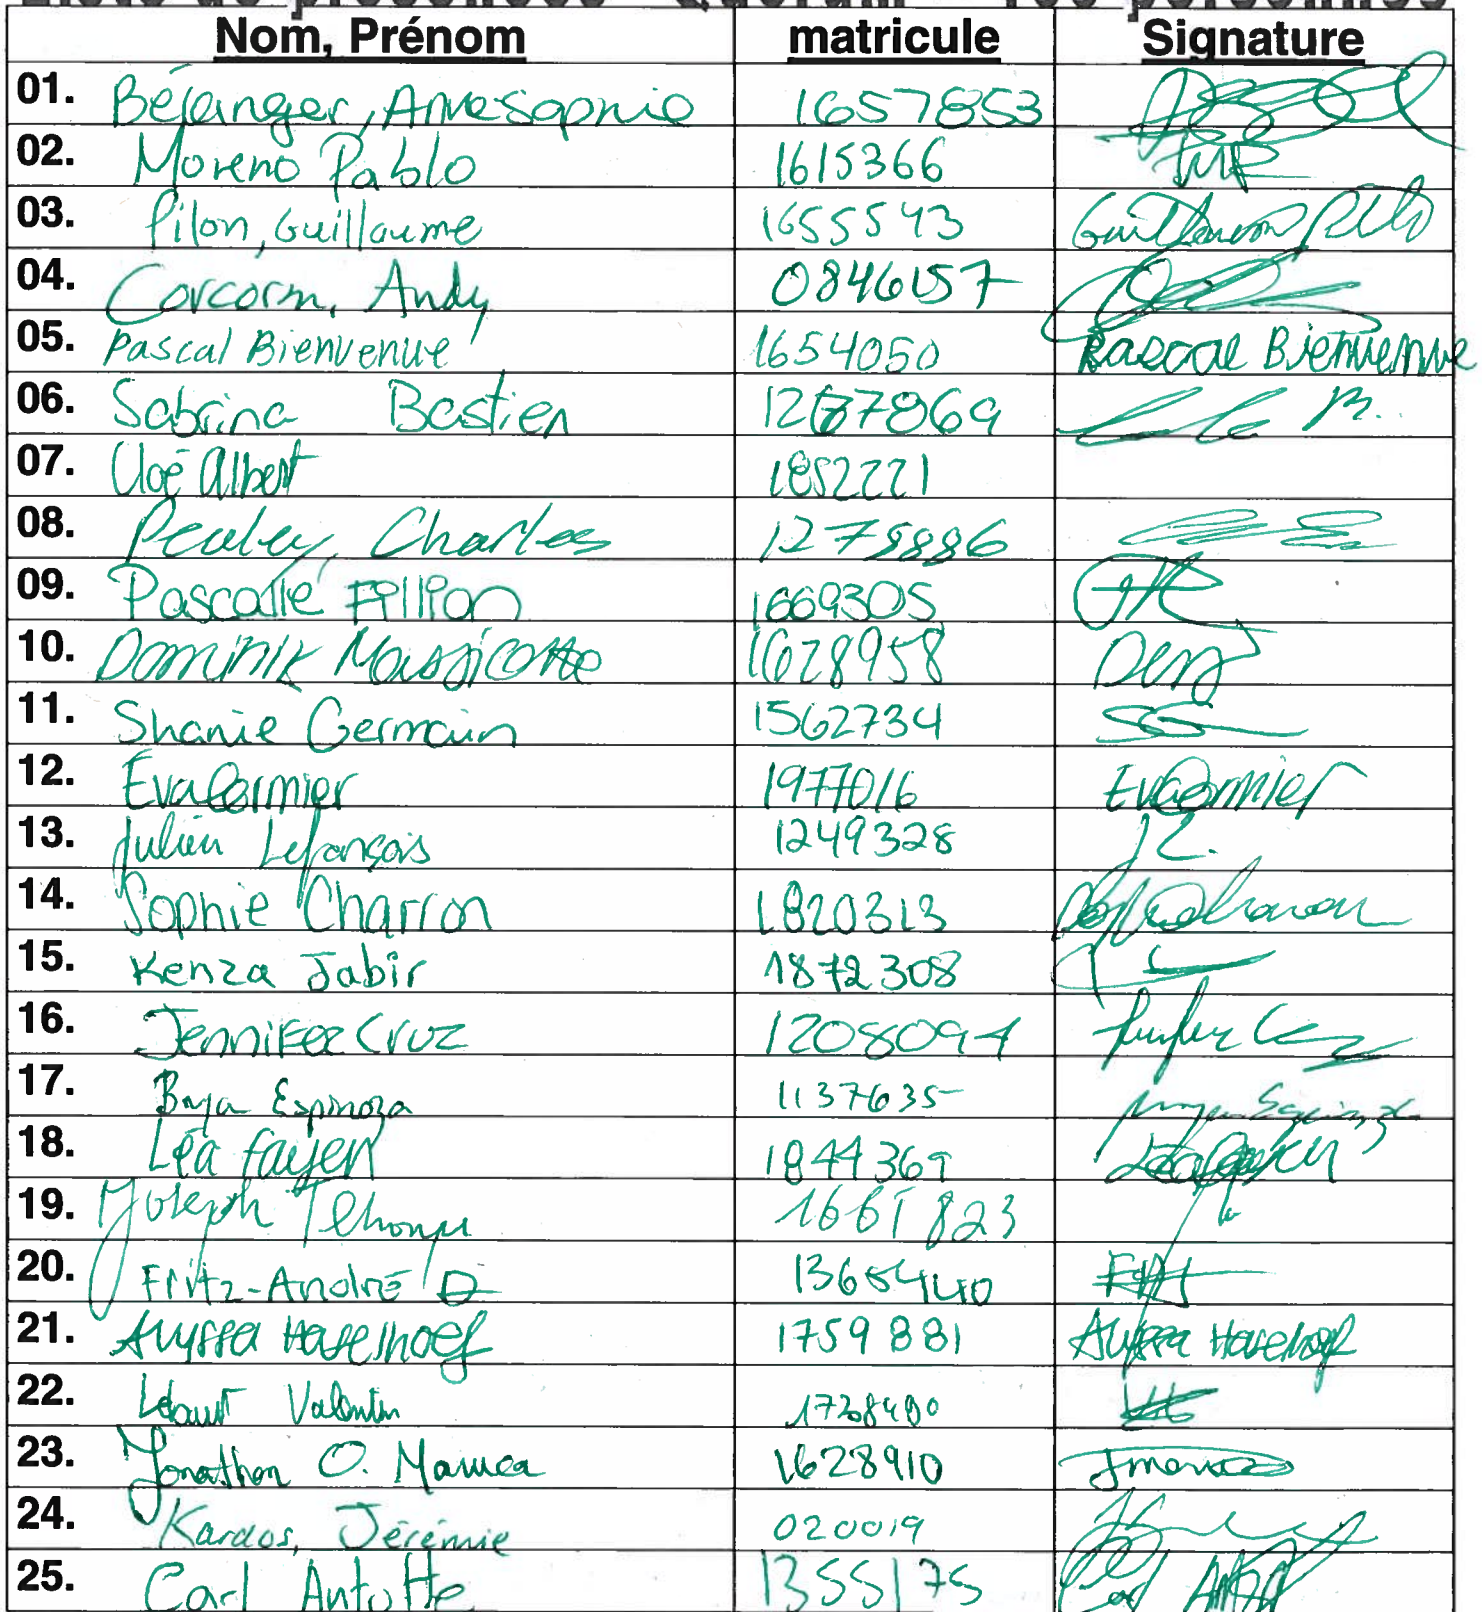 Nom, Prénom matricule Signature
01. Bélanger, Annesophie 1657853
02. Moreno Pablo 1615366
03. Pilon, Guillaume 1655543 Guillaume Pilo
04. Corcorm, Andy 0846157
05. Pascal Bienvenue 1654050 Pascal Bienvenue
06. Sabrina Bastien 1267869
07. Cloé Albert 1852221
08. Charles 1278886
09. Pascalle Fillion 1669305
10. Dominik Massicotte 1628958
11. Shanie Germain 1562734
12. Eva Cormier 1977016 Eva Cormier
13. Julien Lefrançois 1249328 JL.
14. Sophie Charron 1820313
15. Kenza Jabir 1872308
16. Jennifer Cruz 1208094
17. Espinoza 1137635
18. Léa Fayen 1844369
19. Joseph 1661823
20. Fritz-André D 1365440
21. Alyssa Havelhoef 1759881 Alyssa Havelhoef
22. Valentin
23. Jonathan O. Mamea 1628910
24. Kardos, Jérémie 020019
25. Carl Antotte 1355175 Carl